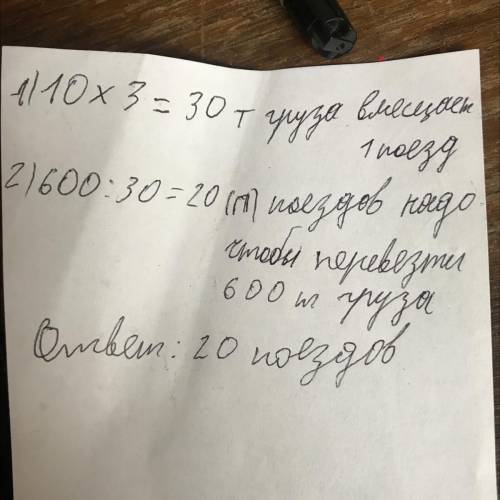 1) 10 x 3 = 30 т груза вмещает
1 поезд
2) 600 : 30 = 20 (п) поездов надо
чтобы перевезти
600 т груза
Ответ: 20 поездов